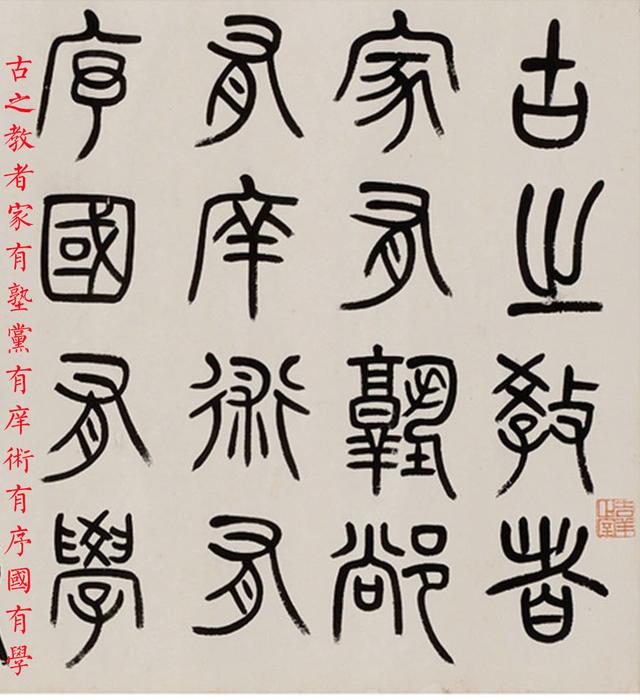 古之教者
家有塾黨
有庠術有
序國有學
古之教者家有塾黨有庠術有序國有學